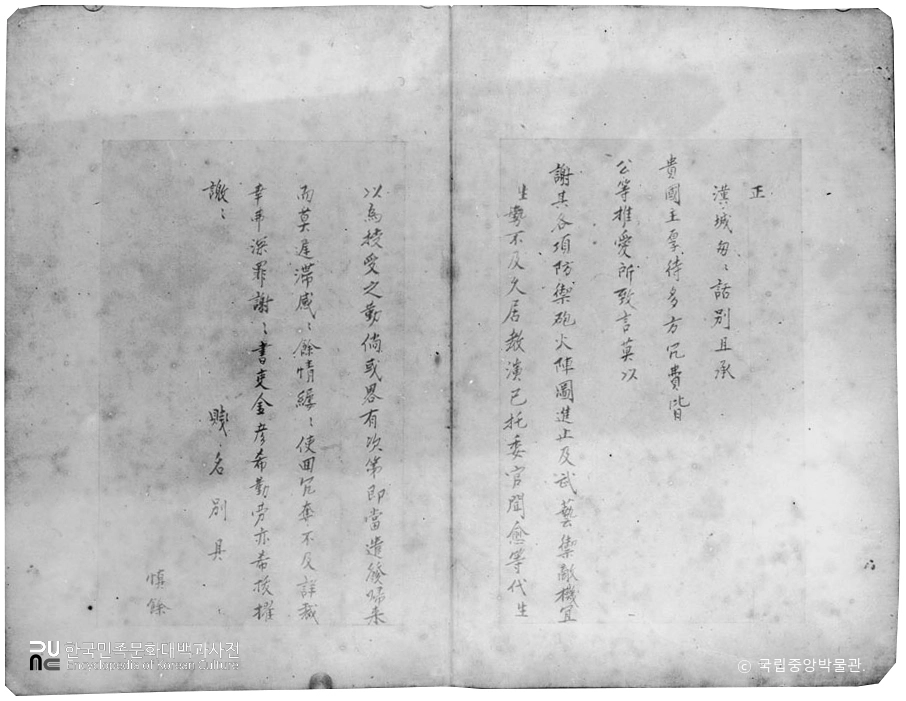 正
漢城匆〻話別且承
貴國主厚待多方冗費皆
公等推愛所致言莫以
謝其各項防禦砲火陣圖進止及武藝禦敵機宜
生勢不及久居教演已托委官聞愈等代生
以為授受之勤倘或畧有次第即當遣發歸来
而莫遲滯感〻餘情縷〻使回冗奪不及詳裁
幸弗深罪謝〻書吏金彦希勤勞亦希拔擢
謝〻
賤名別具
慎餘
한국민족문화대백과사전
Encyclopedia of Korean Culture
© 국립중앙박물관